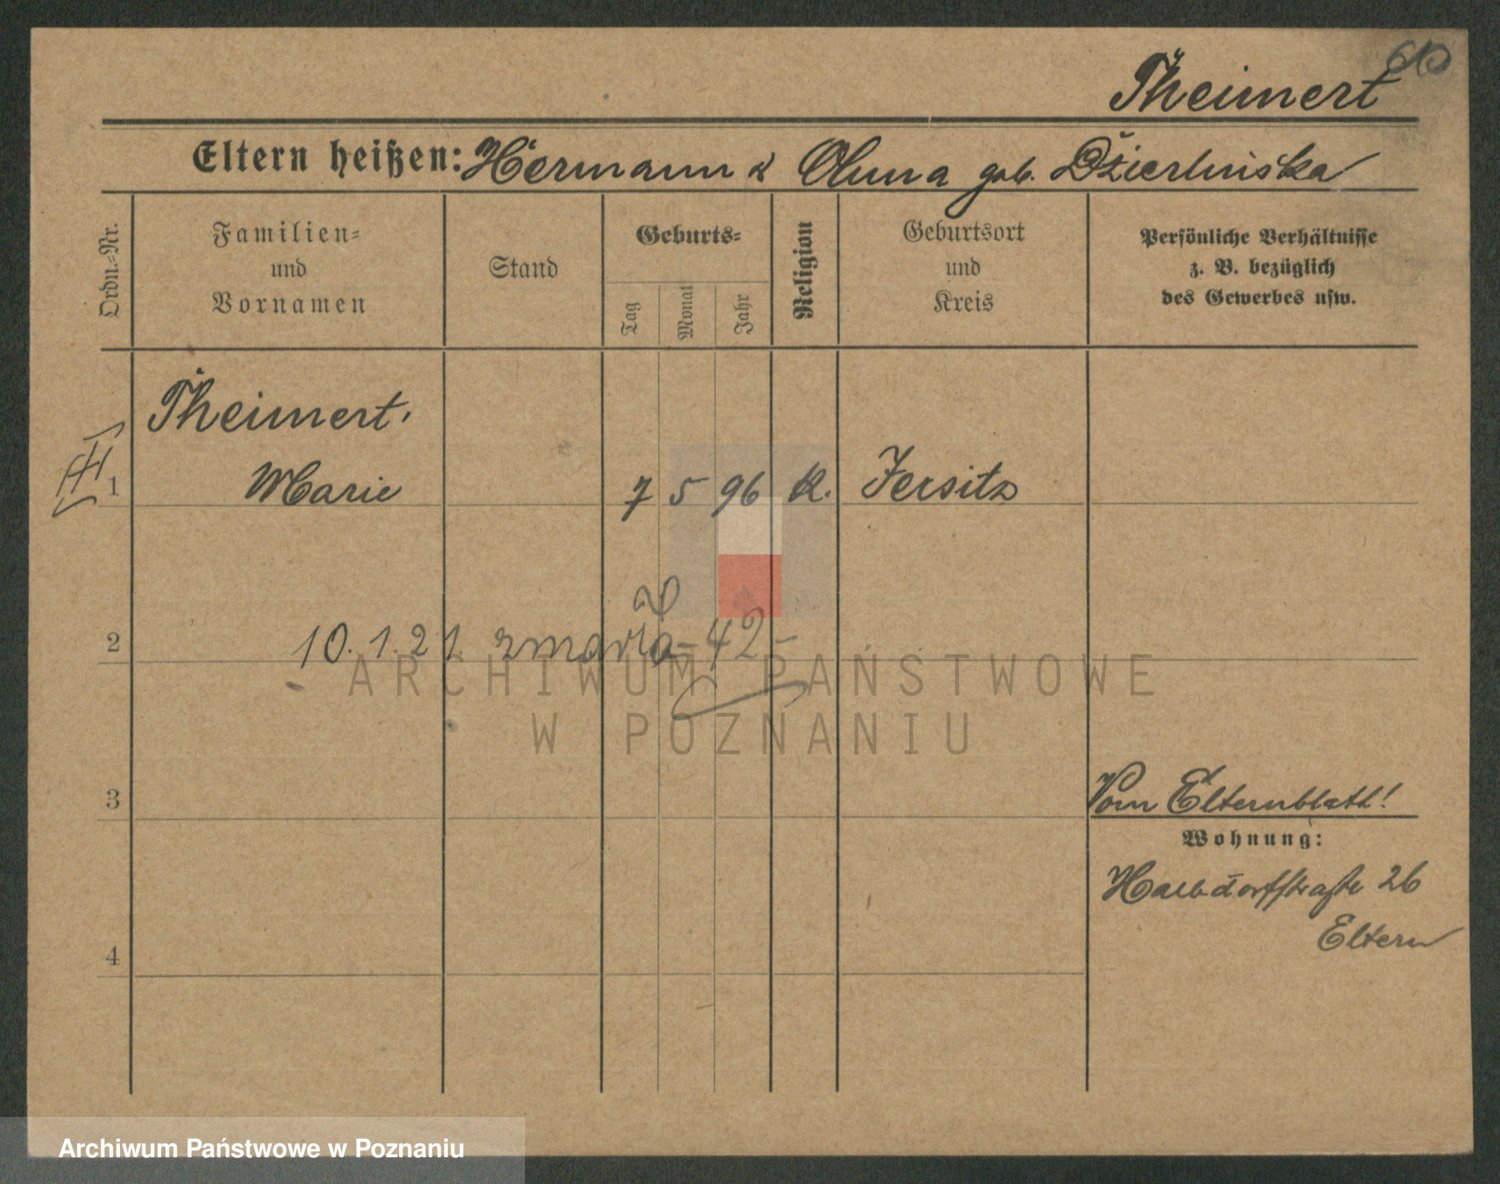 Theimert
Eltern heißen: Hermann & Anna geb. Dzierlinska
Ordn.-Nr.
Familien-
und
Vornamen
Stand
Geburts-
Tag
Monat
Jahr
Religion
Geburtsort
und
Kreis
Persönliche Verhältnisse
z. B. bezüglich
des Gewerbes usw.
Theimert,
1 Marie 7 5 96 K. Jersitz
2 10.1.21. zmarła - 42 -
ARCHIWUM PAŃSTWOWE
W POZNANIU
3 Vom Elternblatt!
Wohnung:
Halbdorfstraße 26
Eltern
4
Archiwum Państwowe w Poznaniu